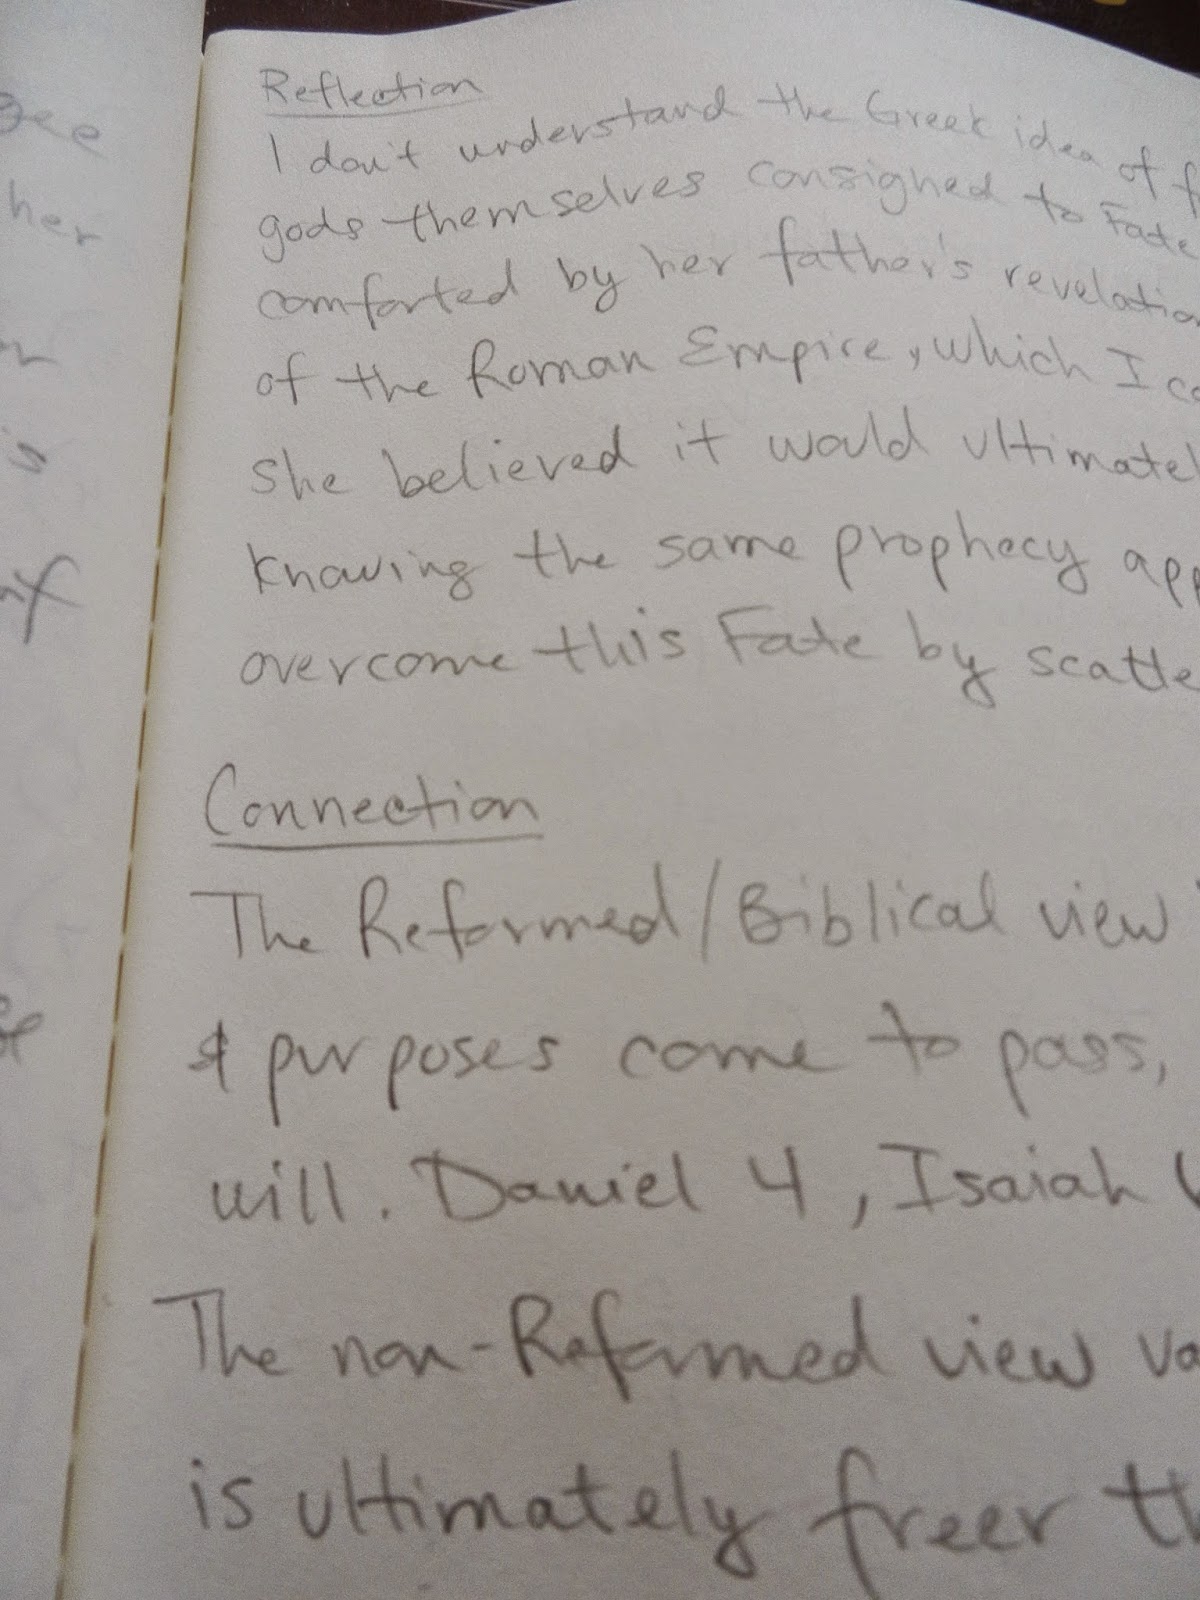 see
her
is
of
Reflection
I don't understand the Greek idea of f
gods themselves consigned to Fate
comforted by her father's revelatio
of the Roman Empire, which I co
she believed it would ultimatel
knowing the same prophecy app
overcome this Fate by scatte
Connection
The Reformed/Biblical view
& purposes come to pass,
will. Daniel 4, Isaiah
The non-Reformed view va
is ultimately freer th